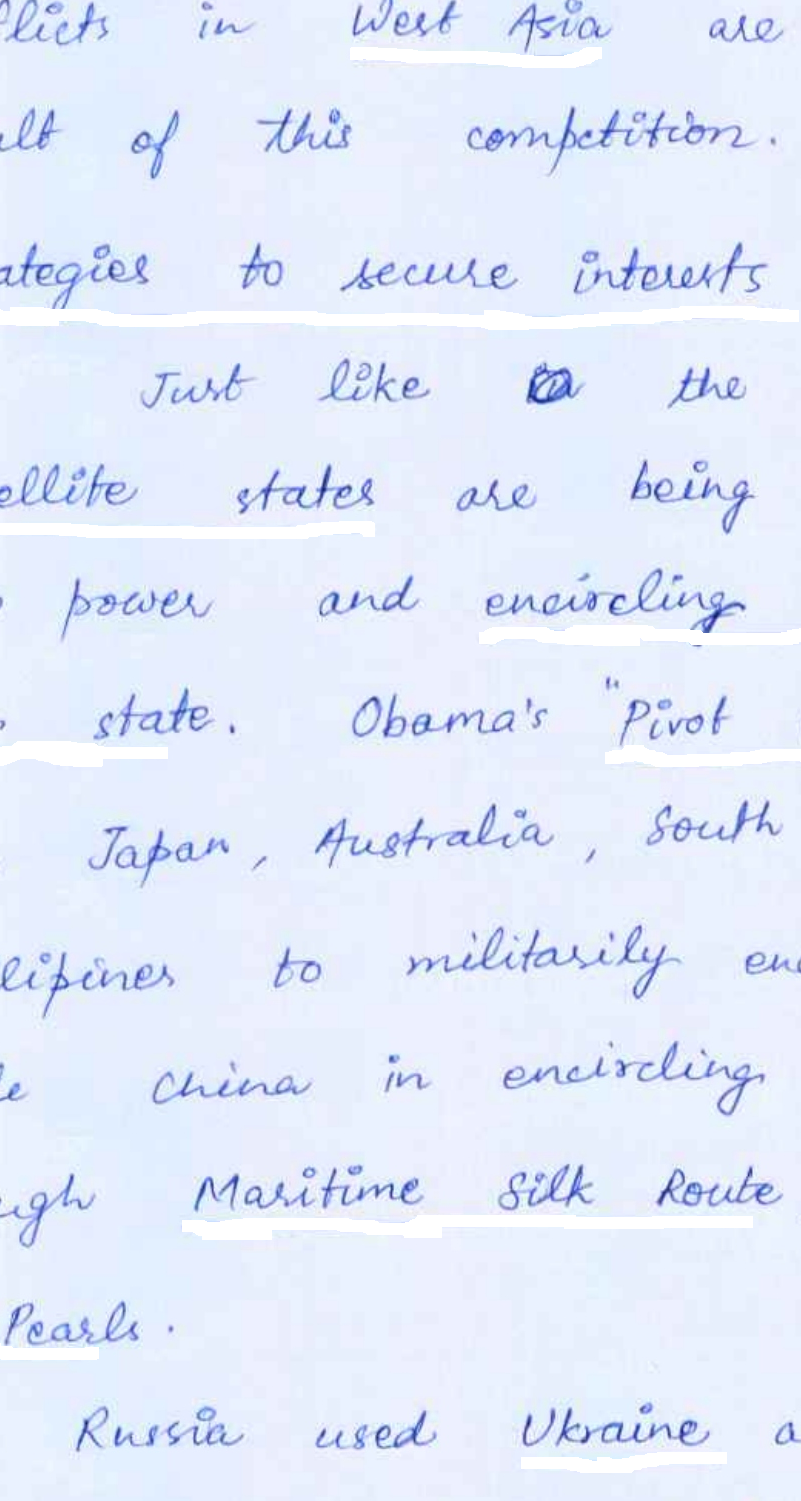 flicts in West Asia are
ult of this competition.
ategies to secure interests
Just like the
ellite states are being
power and encircling
state. Obama's "Pivot
Japan, Australia, South
lipines to militarily enc
le China in encircling
ugh Maritime Silk Route
Pearls.
Russia used Ukraine a